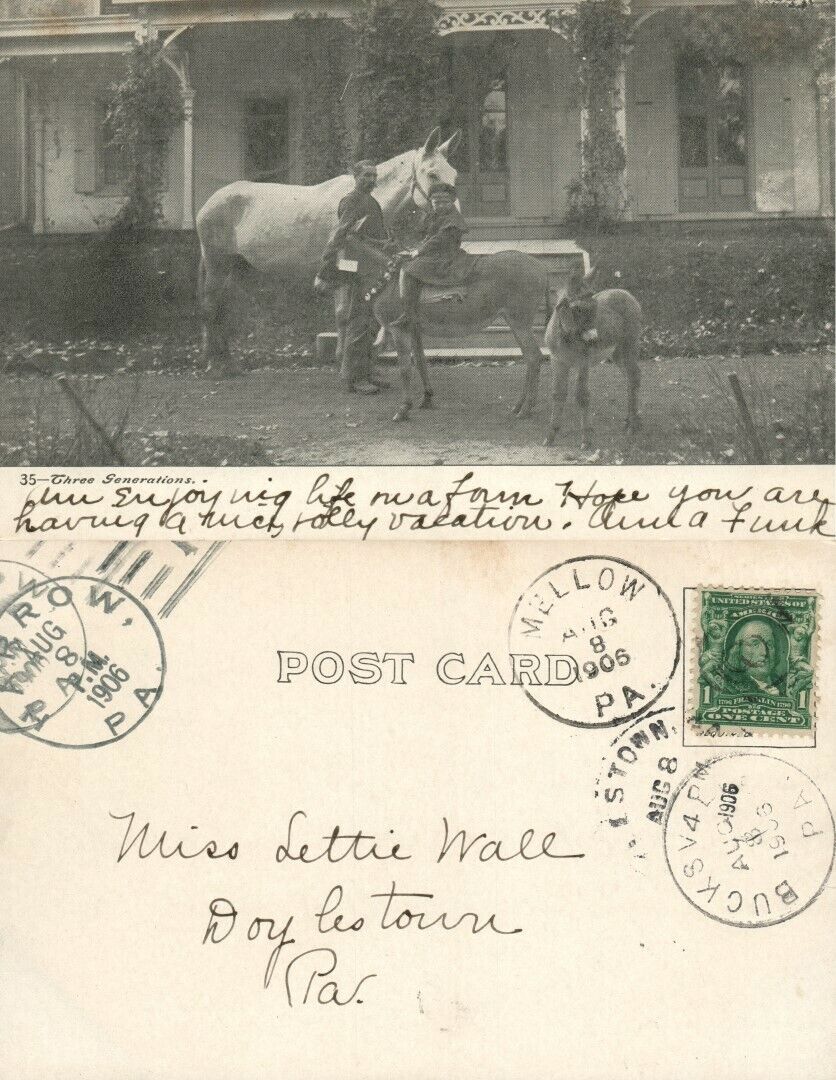 35—Three Generations.
Am enjoying life on a farm Hope you are
having a nice, jolly vacation. Anna Funk
ROW,
AUG
8
P.M.
1906
PA.
MELLOW
AUG
8
1906
PA.
POST CARD
UNITED STATES OF
AMERICA
1 1790 FRANKLIN 1790 1
POSTAGE
ONE CENT
LESTOWN,
AUG 8
BUCKSV
4 PM
AUG
8
1906
1906
PA.
Miss Lettie Wall
Doylestown
Pa.